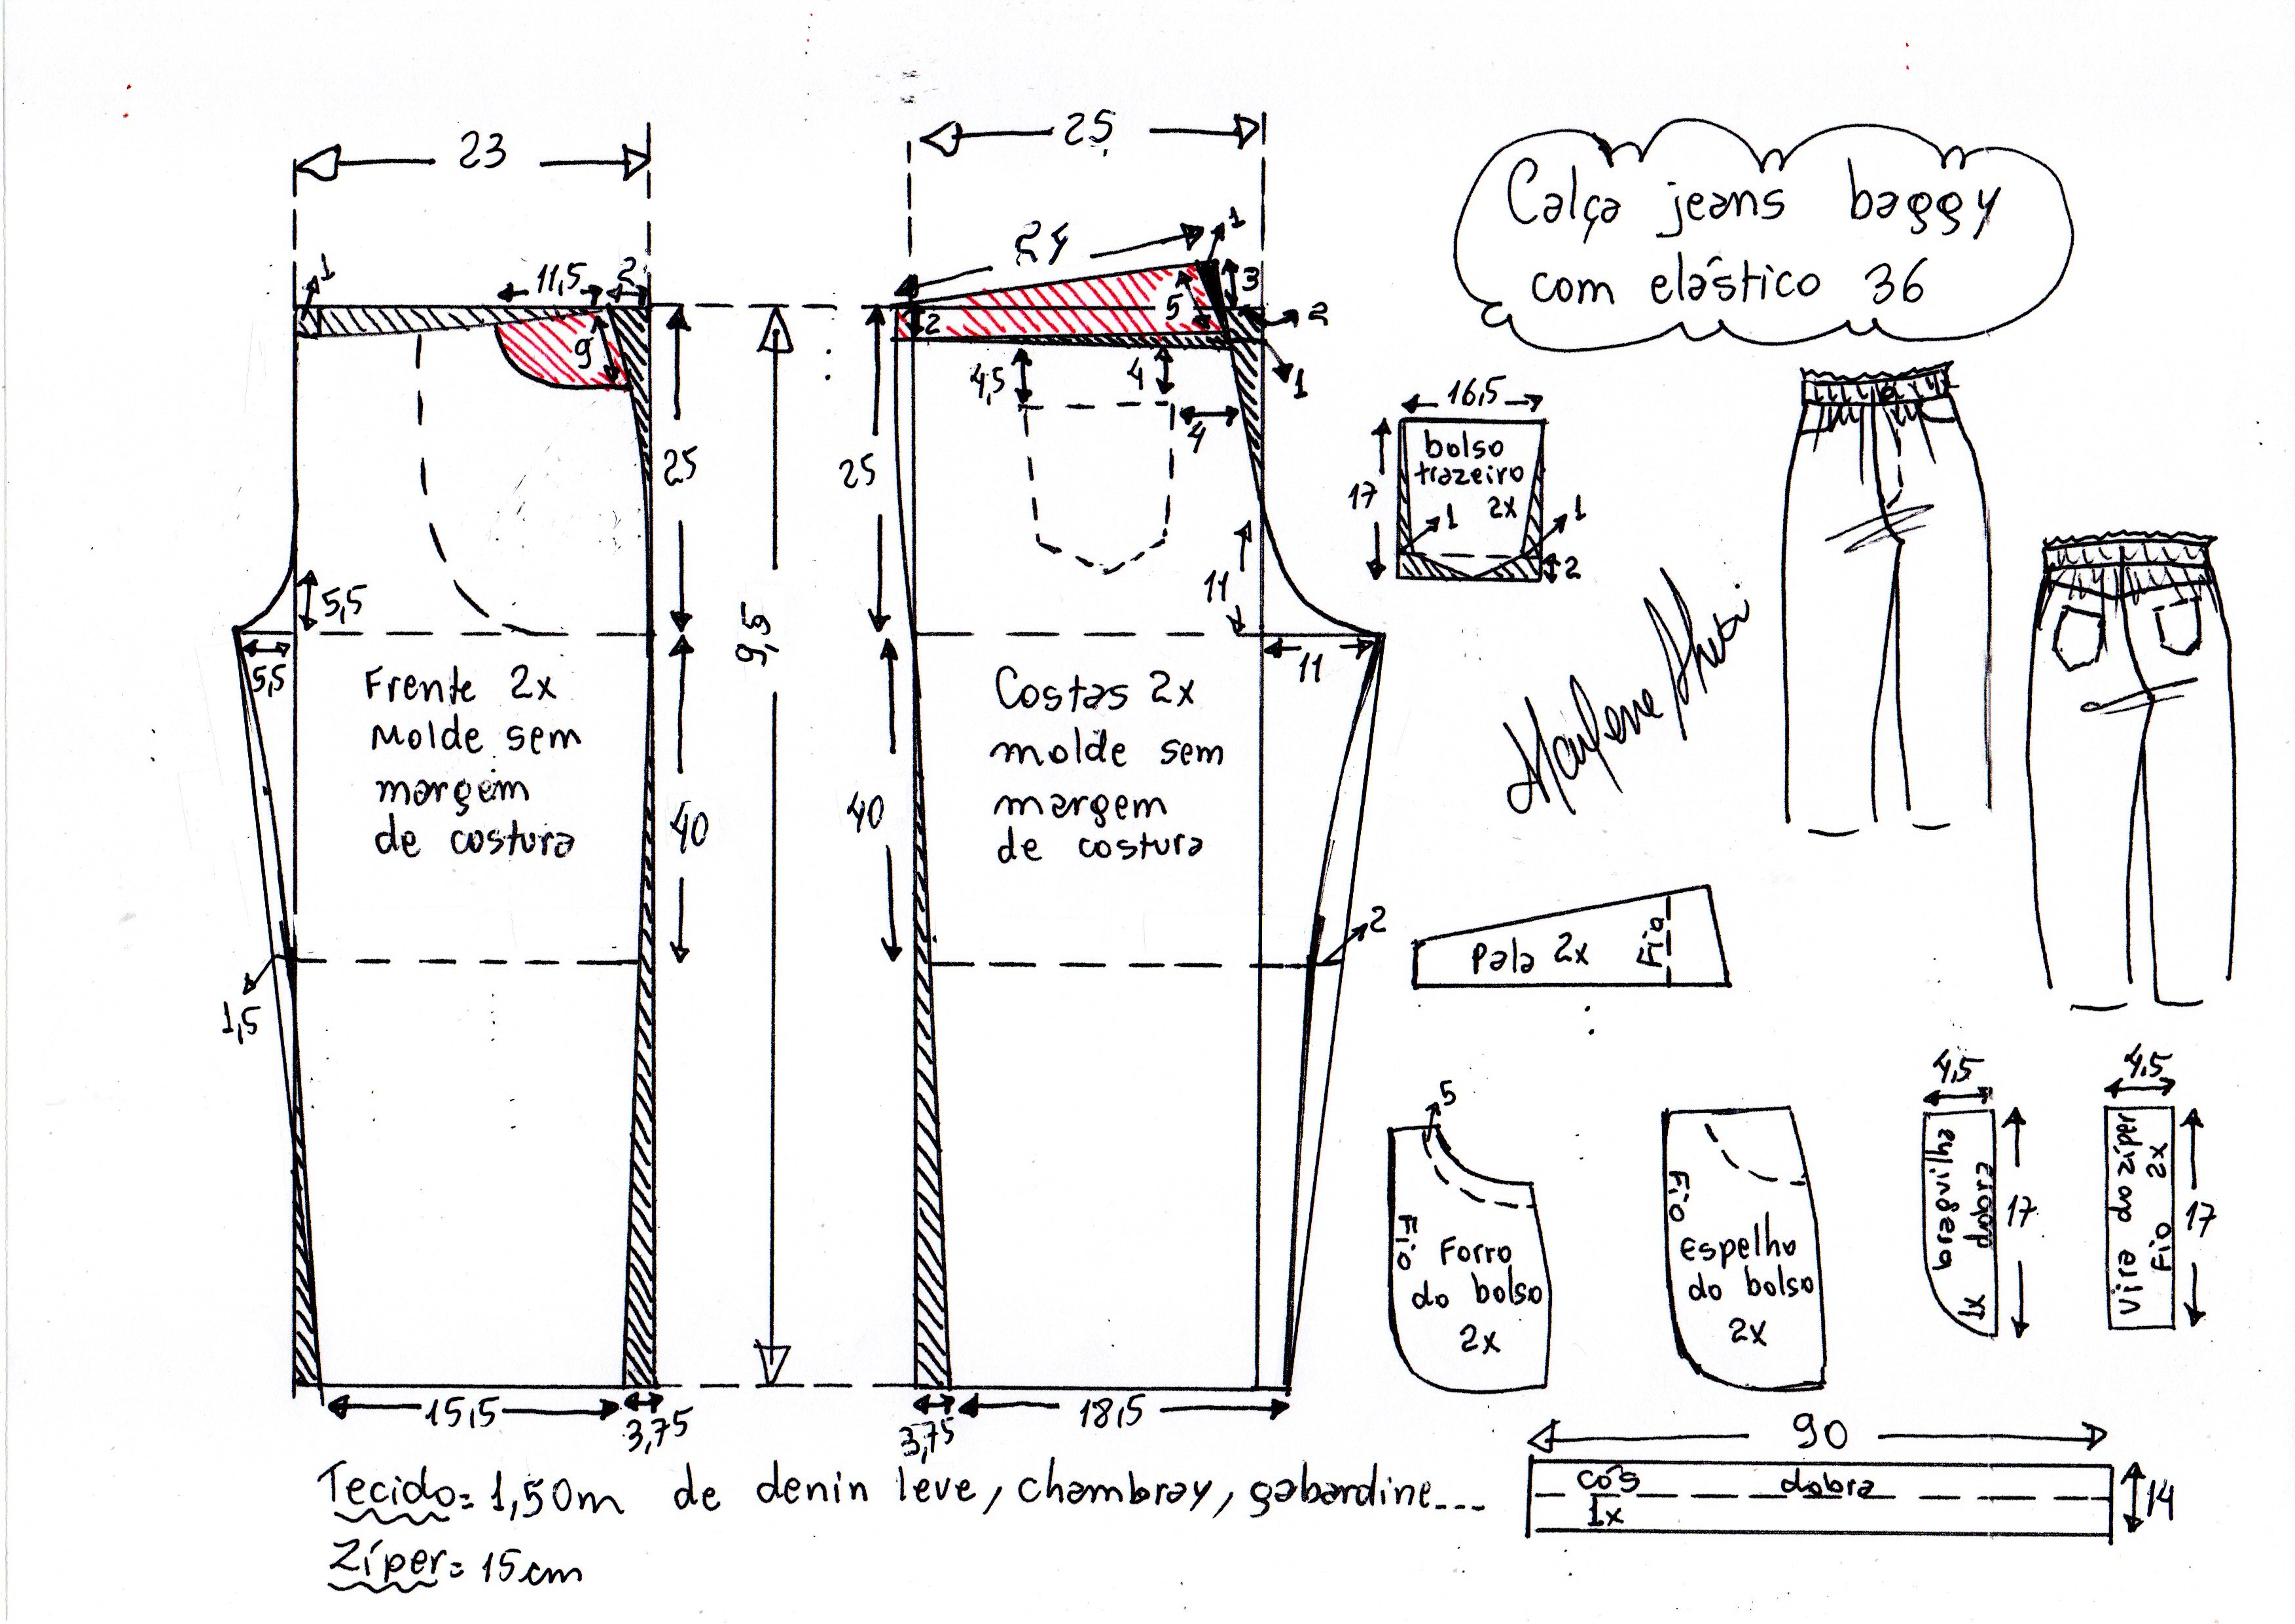 23
25
Calça jeans baggy
com elástico 36
24
1
3
5
2
2
1
1
11,5
2
9
25
5,5
5,5
9,5
25
4,5
4
4
11
11
16,5
17
bolso
trazeiro
2x
1
1
2
Frente 2x
Molde sem
margem
de costura
40
40
Costas 2x
molde sem
margem
de costura
1,5
2
Pala 2x
Fio
5
Fio
Forro
do bolso
2x
Fio
Espelho
do bolso
2x
4,5
braguilha
1x dobra
17
4,5
Vira do zíper
Fio 2x
17
15,5
3,75
3,75
18,5
90
cós
dobra
1x
14
Tecido= 1,50m de denin leve, chambray, gabardine...
Zíper= 15cm